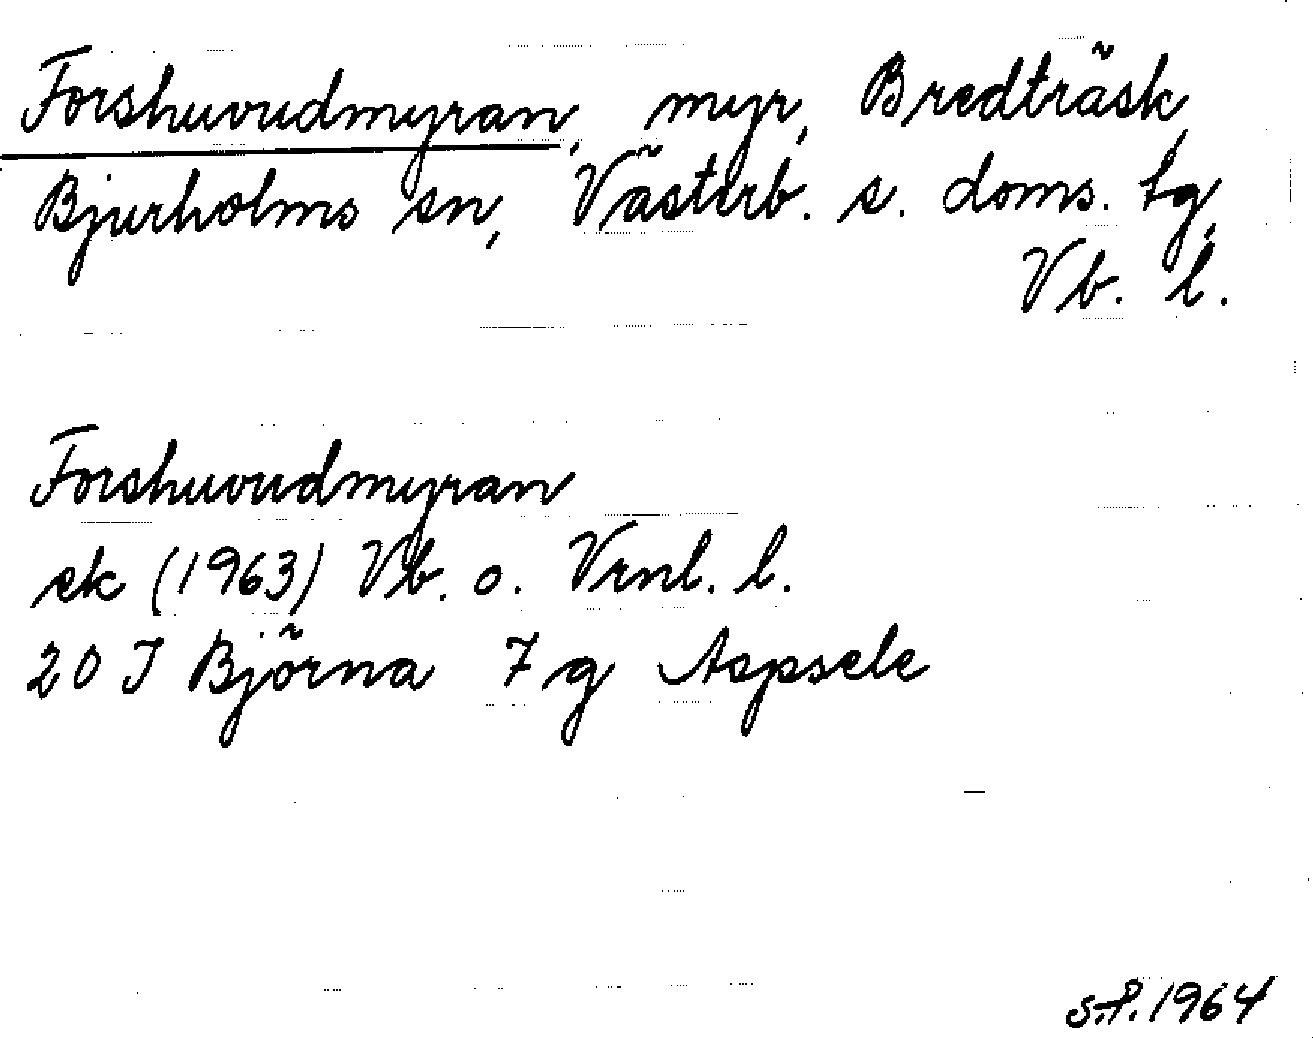 Forshuvudmyran, myr, Bredträsk,
Bjurholms sn, Västerb. s. doms. tg,
Vb. l.
Forshuvudmyran
ek (1963) Vb. o. Vrnl. l.
20 J Björna 7 g Aspsele
S.P. 1964